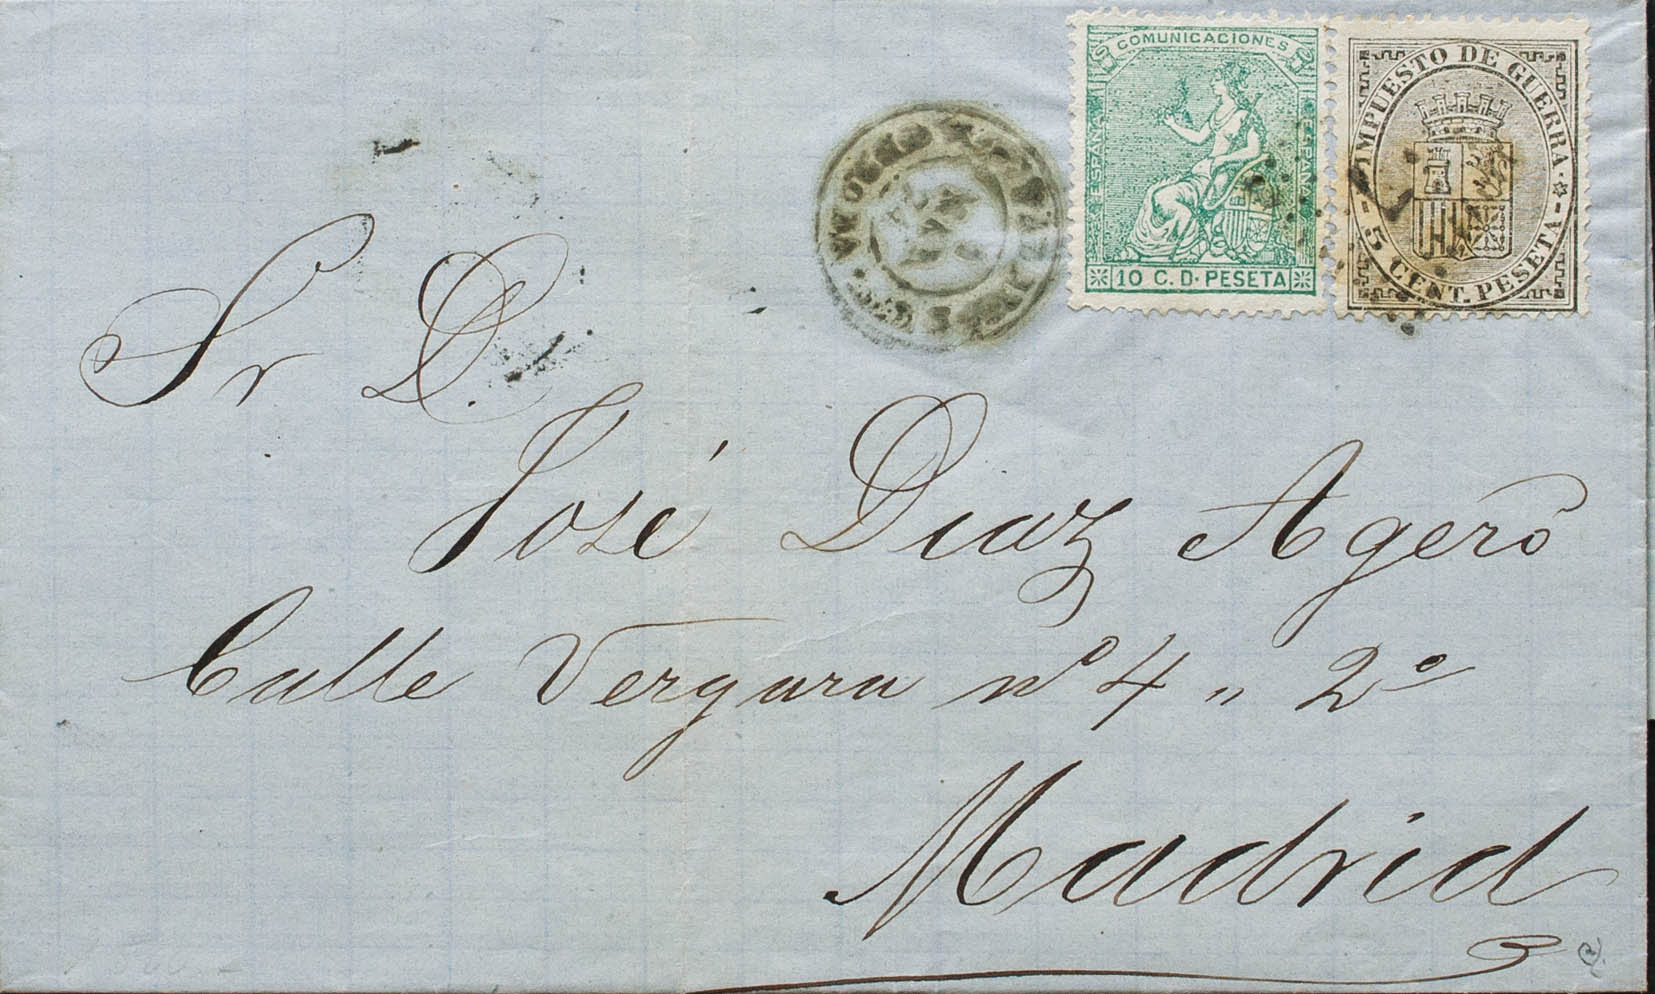 COMUNICACIONES
ESPAÑA
ESPAÑA
10 C. D. PESETA
IMPUESTO DE GUERRA
5 CENT. PESETA
Sr D.
José Diaz Agerô
Calle Vergara nº 4 „ 2º
Madrid